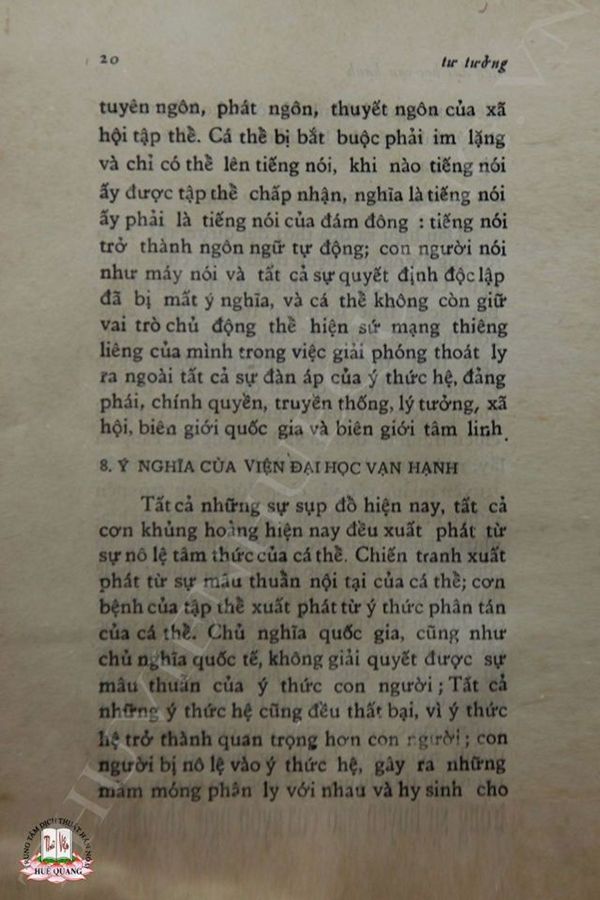 20
tư tưởng
tuyên ngôn, phát ngôn, thuyết ngôn của xã
hội tập thể. Cá thể bị bắt buộc phải im lặng
và chỉ có thể lên tiếng nói, khi nào tiếng nói
ấy được tập thể chấp nhận, nghĩa là tiếng nói
ấy phải là tiếng nói của đám đông : tiếng nói
trở thành ngôn ngữ tự động; con người nói
như máy nói và tất cả sự quyết định độc lập
đã bị mất ý nghĩa, và cá thể không còn giữ
vai trò chủ động thể hiện sứ mạng thiêng
liêng của mình trong việc giải phóng thoát ly
ra ngoài tất cả sự đàn áp của ý thức hệ, đảng
phái, chính quyền, truyền thống, lý tưởng, xã
hội, biên giới quốc gia và biên giới tâm linh.
8. Ý NGHĨA CỦA VIỆN ĐẠI HỌC VẠN HẠNH
Tất cả những sự sụp đổ hiện nay, tất cả
cơn khủng hoảng hiện nay đều xuất phát từ
sự nô lệ tâm thức của cá thể. Chiến tranh xuất
phát từ sự mâu thuẫn nội tại của cá thể; cơn
bệnh của tập thể xuất phát từ ý thức phân tán
của cá thể. Chủ nghĩa quốc gia, cũng như
chủ nghĩa quốc tế, không giải quyết được sự
mâu thuẫn của ý thức con người ; Tất cả
những ý thức hệ cũng đều thất bại, vì ý thức
hệ trở thành quan trọng hơn con người ; con
người bị nô lệ vào ý thức hệ, gây ra những
mầm móng phân ly với nhau và hy sinh cho
TRUNG TÂM DỊCH THUẬT HÁN NÔM
HUỆ QUANG